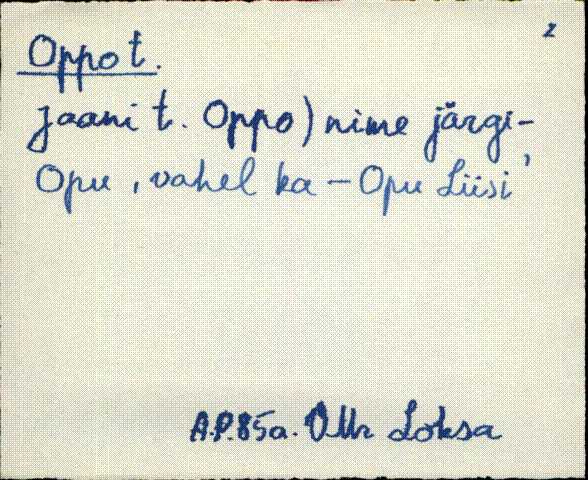 2
Oppo t.
Jaani t. Oppo) nime järgi -
Opu, vahel ka - Opu Liisi'
A.P. 85a. Loksa